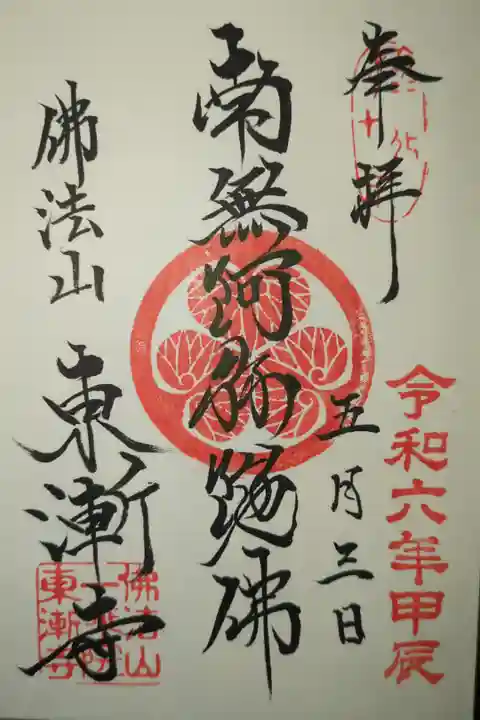 奉拝
令和六年甲辰
五月三日
南無阿弥陀佛
佛法山
東漸寺
佛法山
東漸寺